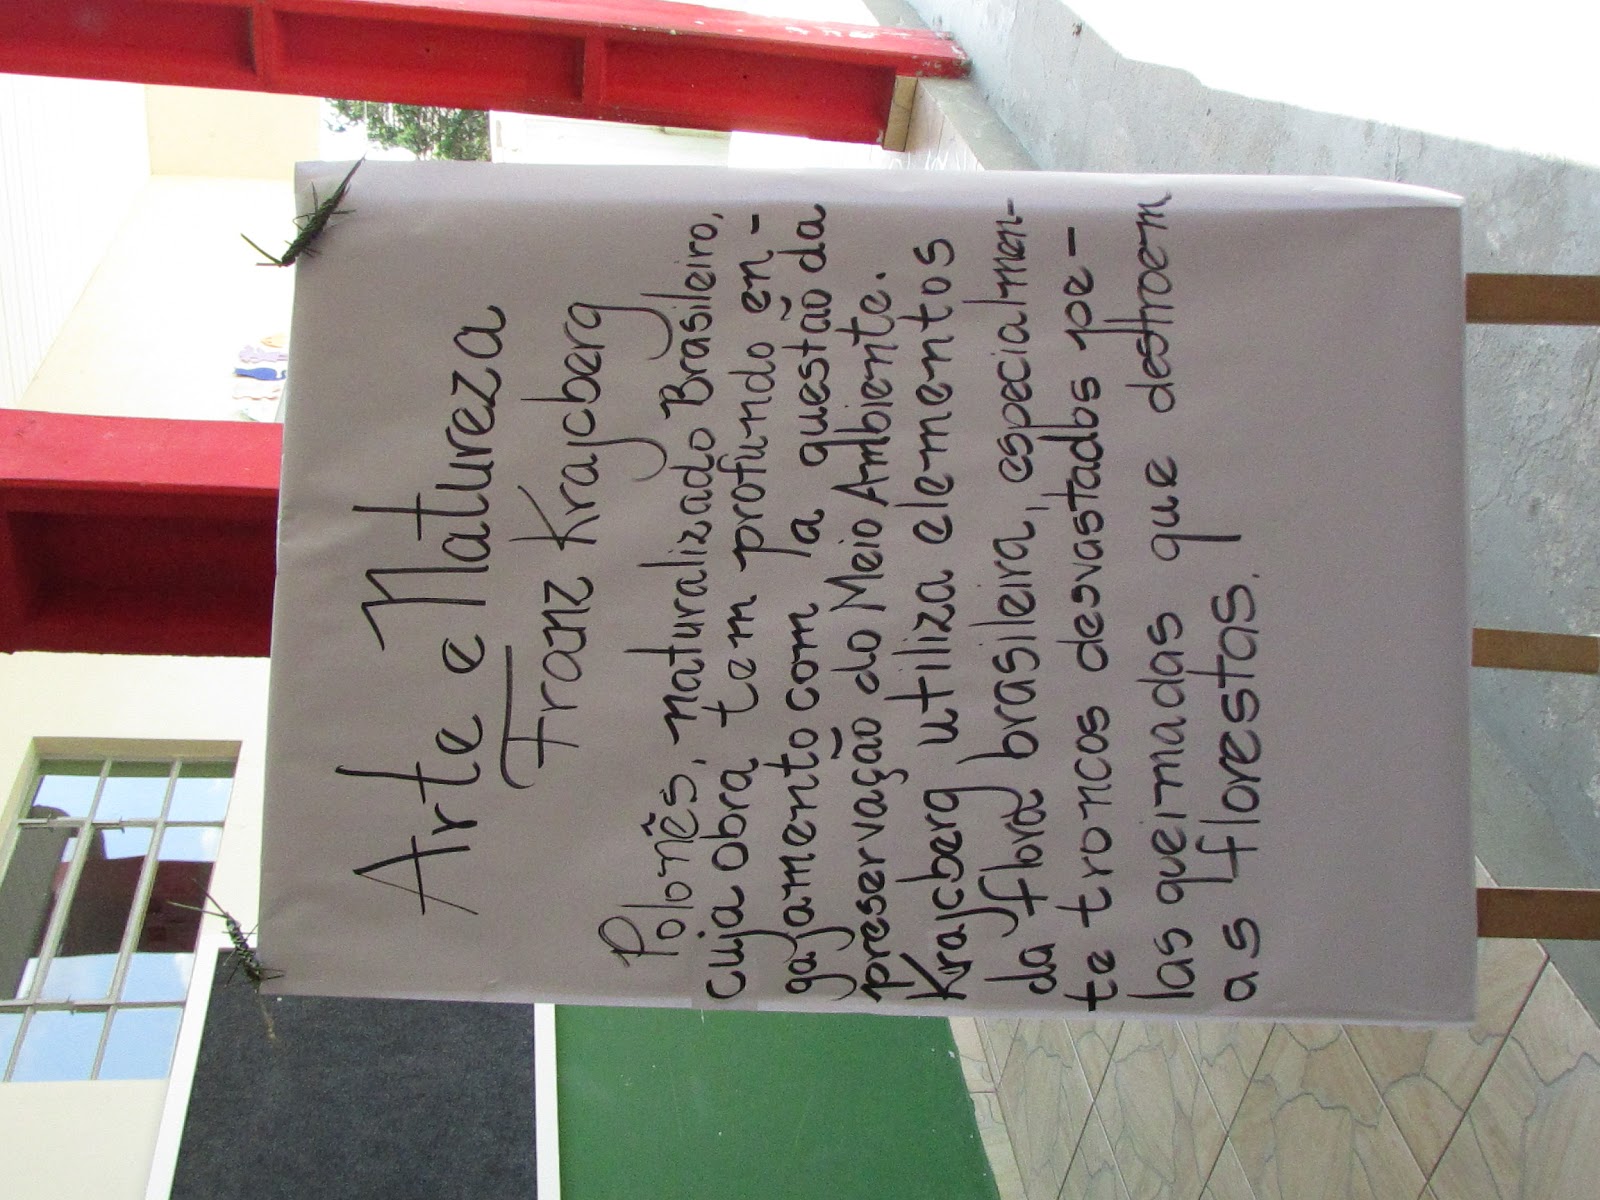 Arte e Natureza
Franz Krajcberg
Polonês, naturalizado Brasileiro,
cuja obra tem profundo en-
gajamento com a questão da
preservação do Meio Ambiente.
Krajcberg utiliza elementos
da flora brasileira, especialmen-
te troncos desvastados pe-
las queimadas que destroem
as florestas.